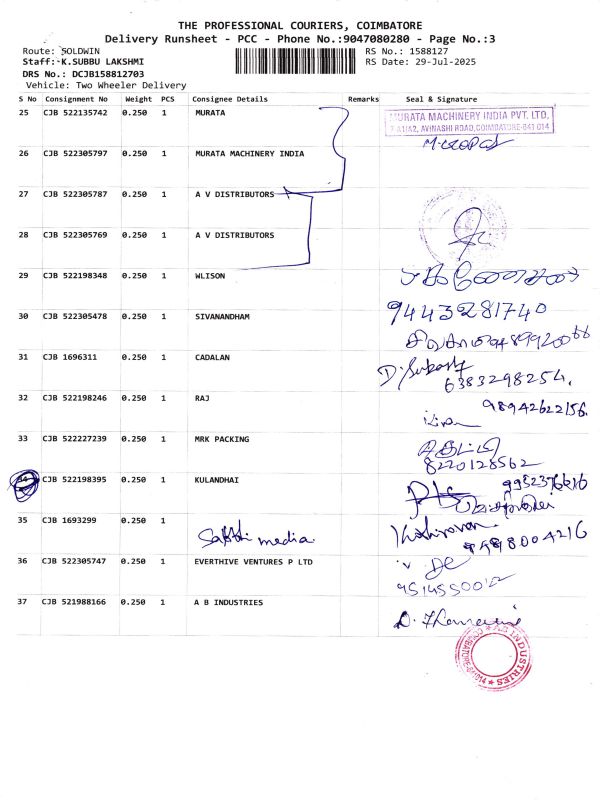 THE PROFESSIONAL COURIERS, COIMBATORE
Delivery Runsheet - PCC - Phone No.:9047080280 - Page No.:3
Route: SOLDWIN RS No.: 1588127
Staff:-K.SUBBU LAKSHMI RS Date: 29-Jul-2025
DRS No.: DCJB158812703
Vehicle: Two Wheeler Delivery
S No Consignment No Weight PCS Consignee Details Remarks Seal & Signature
25 CJB 522135742 0.250 1 MURATA
MURATA MACHINERY INDIA PVT. LTD.
AVINASHI ROAD, COIMBATORE-641 014
26 CJB 522305797 0.250 1 MURATA MACHINERY INDIA
27 CJB 522305787 0.250 1 A V DISTRIBUTORS
28 CJB 522305769 0.250 1 A V DISTRIBUTORS
29 CJB 522198348 0.250 1 WLISON
9443281740
30 CJB 522305478 0.250 1 SIVANANDHAM
31 CJB 1696311 0.250 1 CADALAN
6383298254.
32 CJB 522198246 0.250 1 RAJ 98942622156.
33 CJB 522227239 0.250 1 MRK PACKING
8220128562
34 CJB 522198395 0.250 1 KULANDHAI
35 CJB 1693299 0.250 1
Sakthi media Kathiravan
36 CJB 522305747 0.250 1 EVERTHIVE VENTURES P LTD
37 CJB 521988166 0.250 1 A B INDUSTRIES
INDUSTRIES